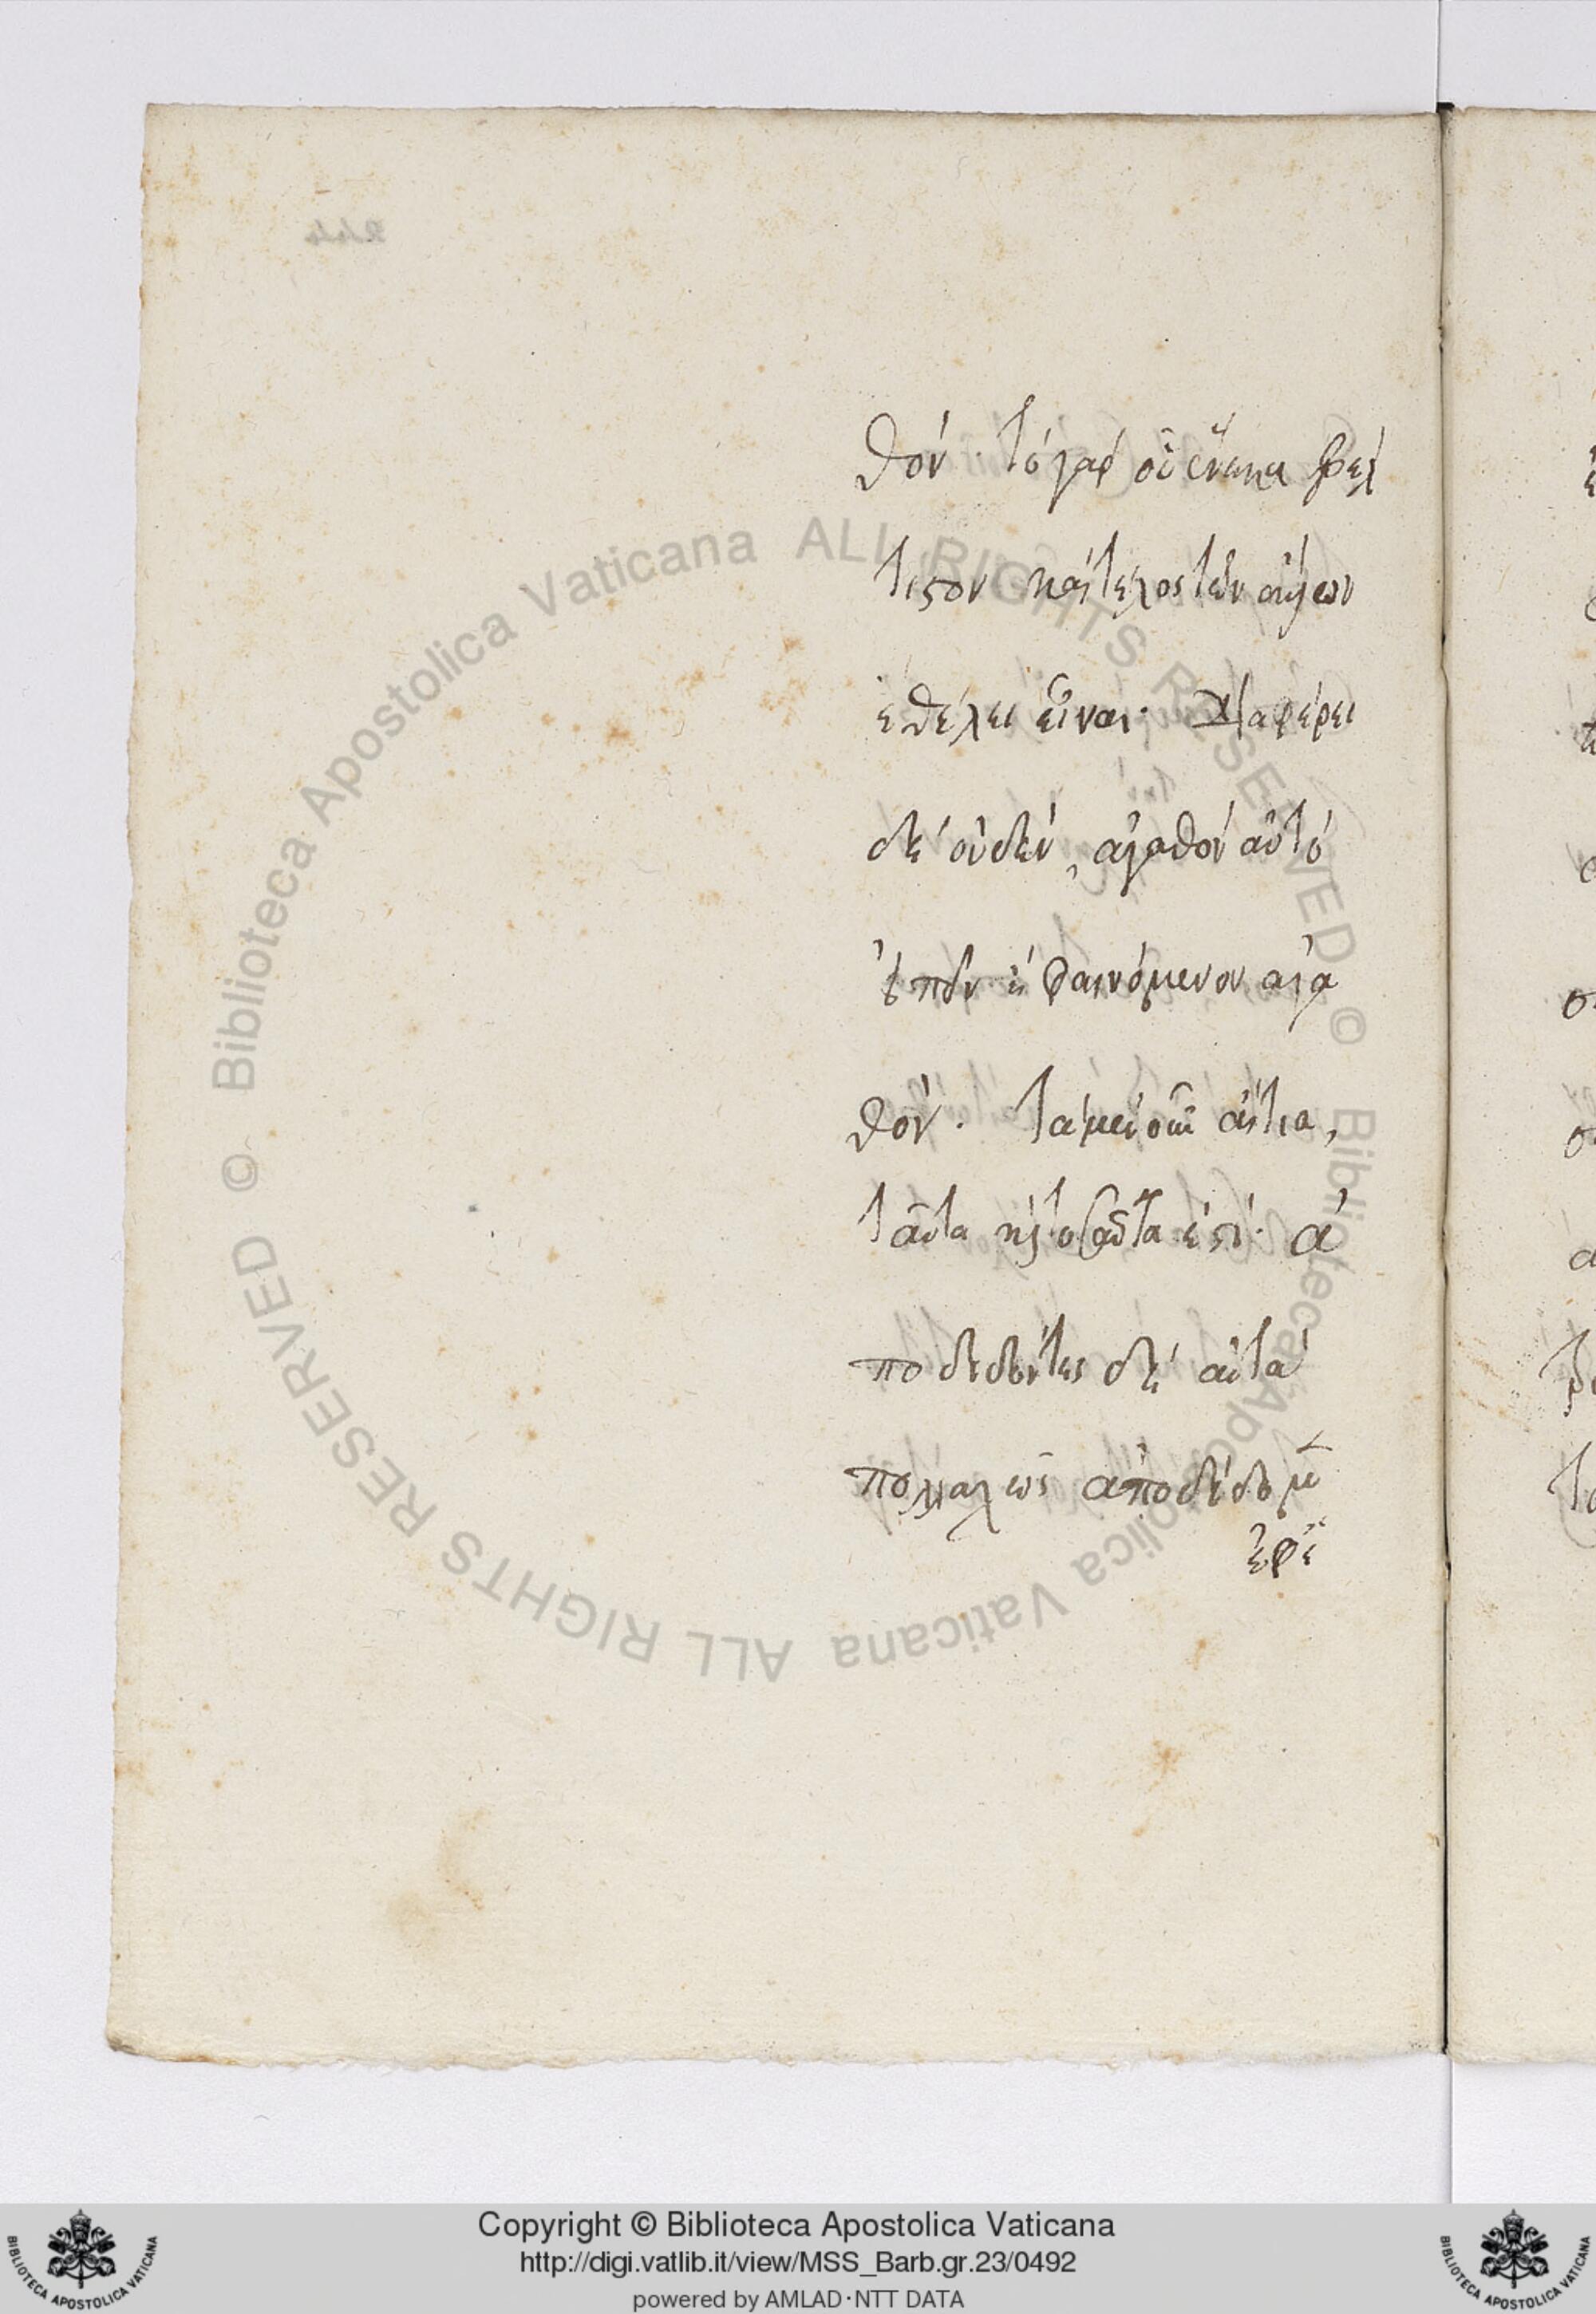 θόν· τὸ γὰρ οὗ ἕνεκα βέλ
τιστον καὶ τέλος τῶν ἄλλων
ἐθέλει εἶναι· διαφέρει
δὲ οὐδὲν, ἀγαθὸν αὐτὸ
εἰπεῖν ἢ φαινόμενον ἀγα
θόν. τὰ μὲν οὖν αἴτια,
ταῦτα καὶ τοσαῦτα ἐστὶ· ἀ
πολλαχῶς
ἐφε
Biblioteca Apostolica Vaticana ALL RIGHTS RESERVED ©
Biblioteca Apostolica Vaticana ALL RIGHTS RESERVED ©
Copyright © Biblioteca Apostolica Vaticana
http://digi.vatlib.it/view/MSS_Barb.gr.23/0492
powered by AMLAD·NTT DATA
BIBLIOTECA APOSTOLICA VATICANA
BIBLIOTECA APOSTOLICA VATICANA